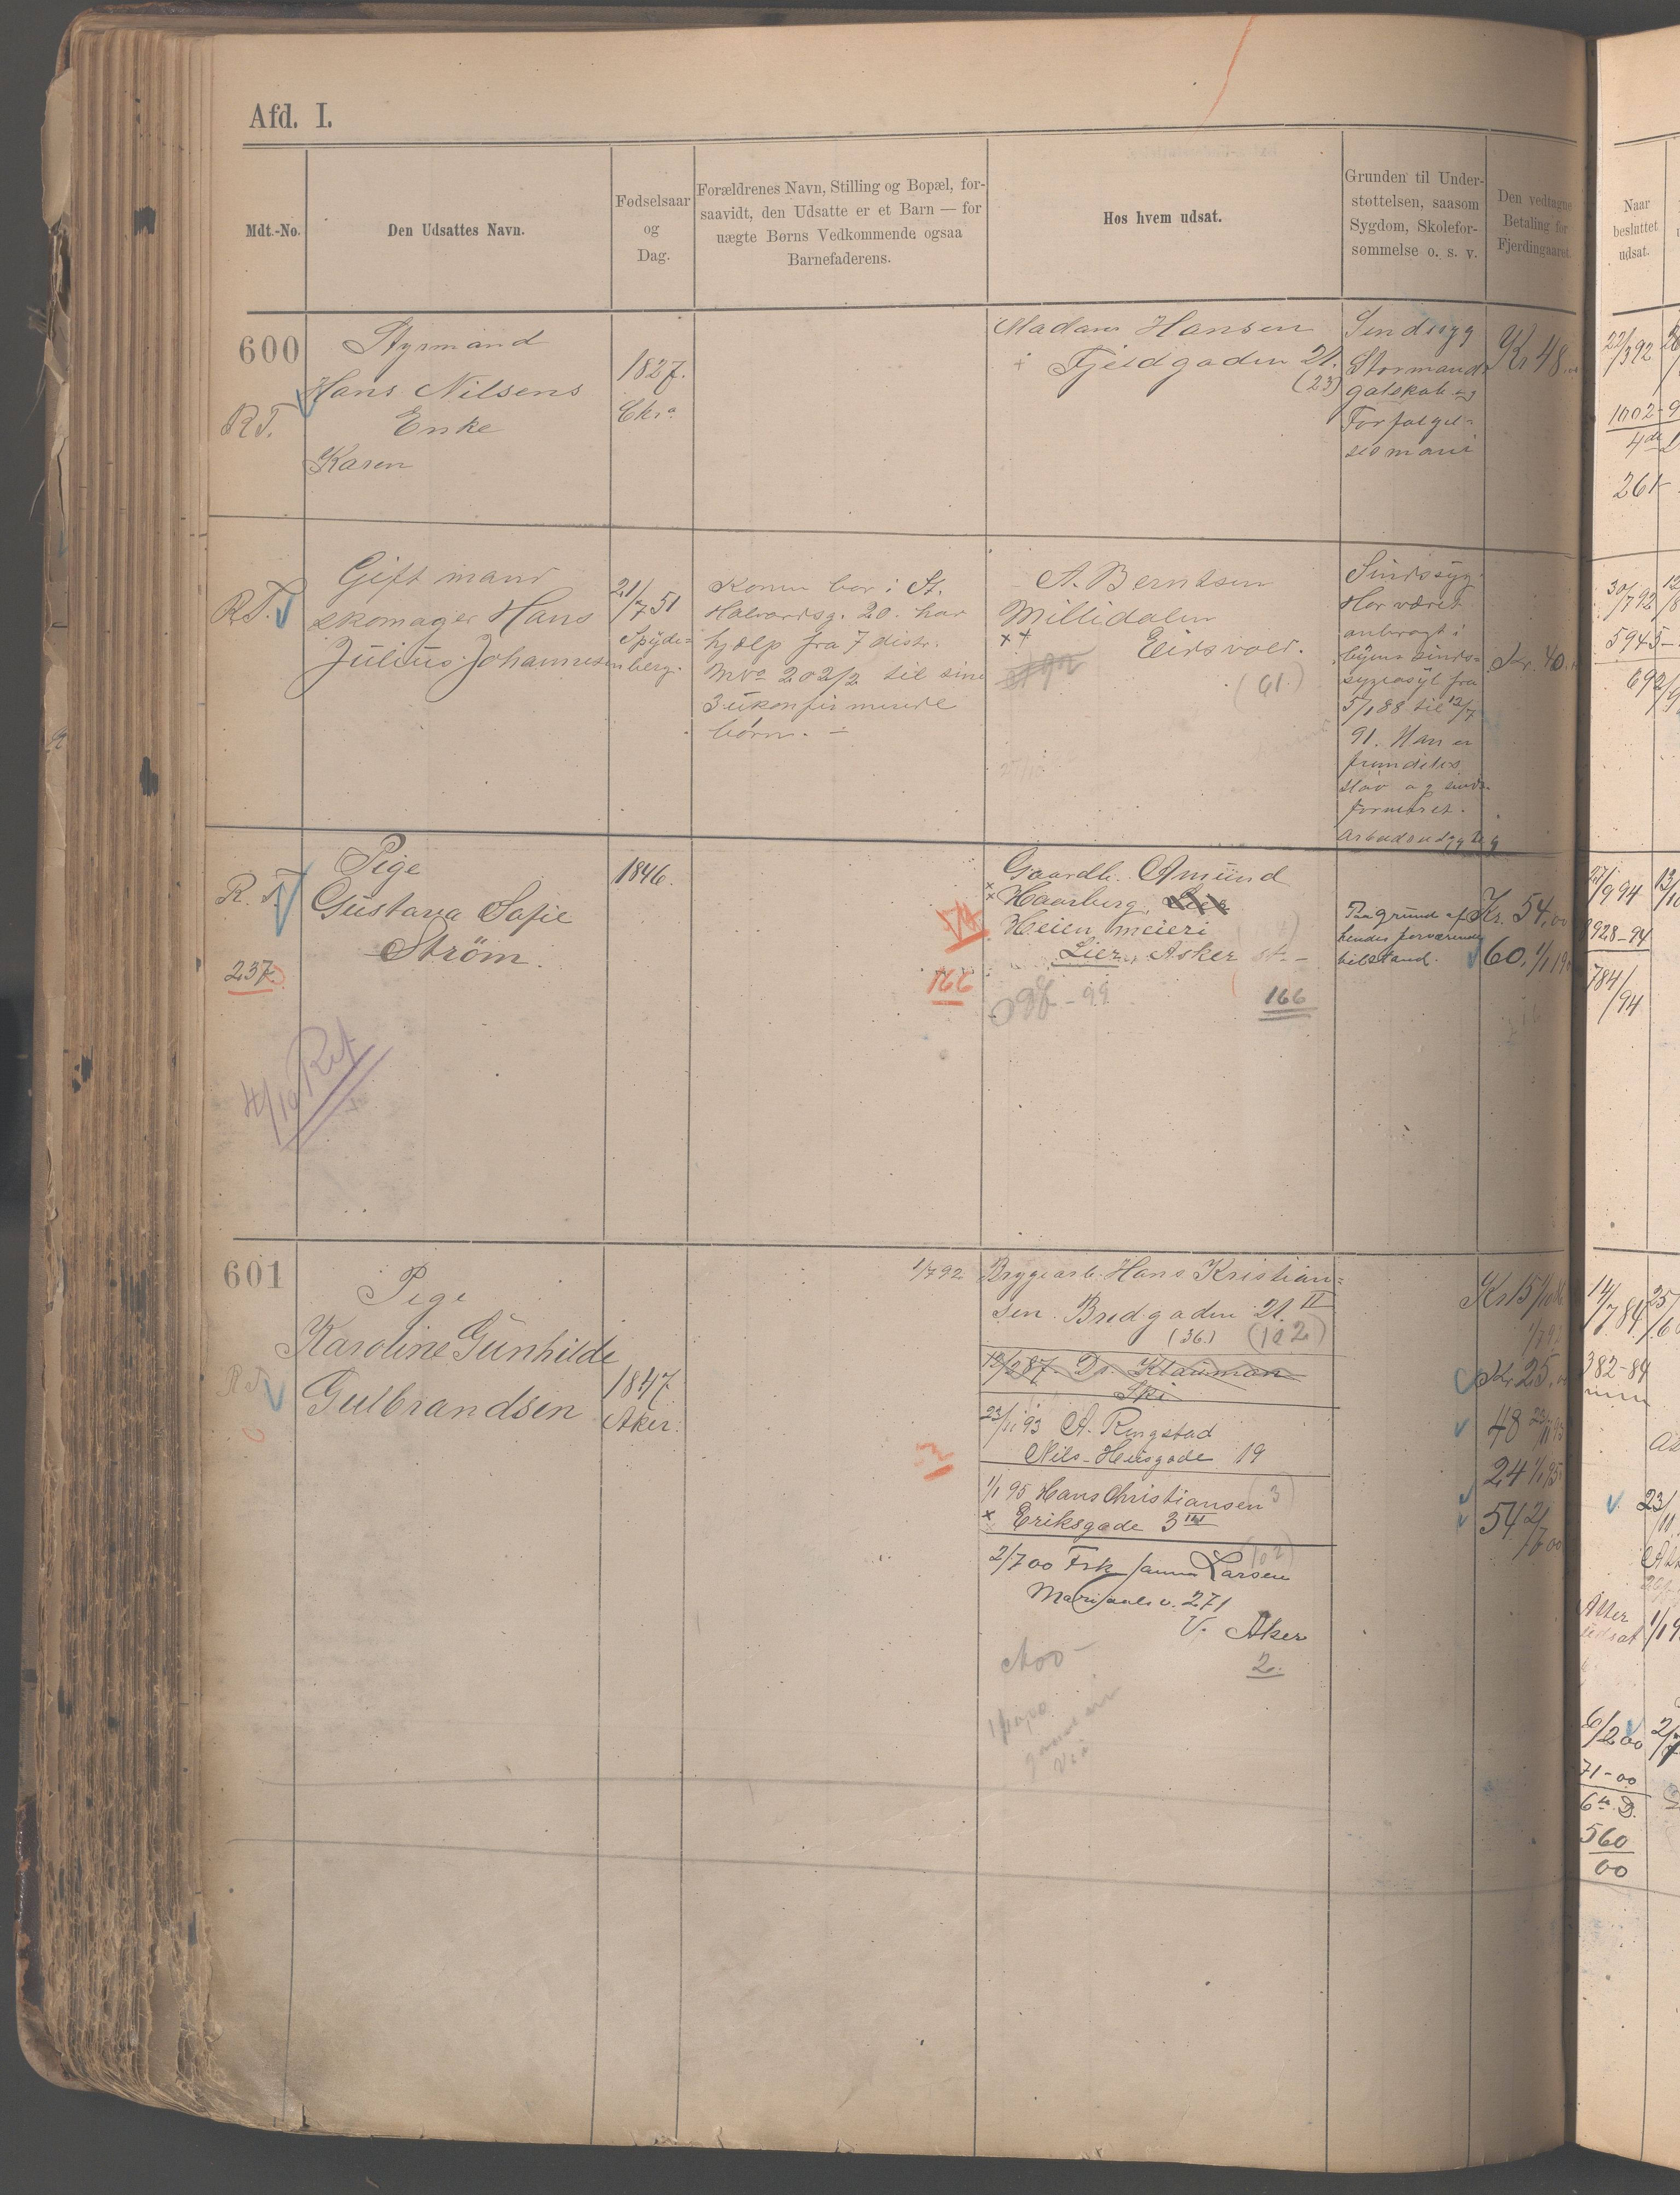 Afd. I.
Mdt.-No.
Den Udsattes Navn.
Fødselsaar
og
Dag.
Forældrenes Navn, Stilling og Bopæl, for-
saavidt, den Udsatte er et Barn — for
uægte Børns Vedkommende ogsaa
Barnefaderens.
Hos hvem udsat.
Grunden til Under-
støttelsen, saasom
Sygdom, Skolefor-
sømmelse o. s. v.
Den vedtagne
Betaling for
Fjerdingaaret.
Naar
besluttet
udsat.
600
R.T.
Styrmand
Hans Nilsens
Enke
Karen
1827.
Chr.a
Madam Hansen
Fjeldgaden 21.
(23)
Sindssyg
Stormands
galskab og
Forfølgel-
sesmani
Kr. 48.
22/3 92
1002-9
4de
261
R.T.
Gift mand
skomager Hans
Julius Johannesen
21/7 51
Spyde-
berg.
Konen bor i St.
Halvardsg. 20. har
hjælp fra 7 distr.
MNo 202/2 til sine
3 ukonfirmerede
børn.
A. Berntsen
Millidalen
Eidsvold.
(61.)
Sindssyg.
Har været
anbragt i
byens sinds-
sygeasyl fra
5/1 88 til 12/7
91. Han er
fremdeles
sløv og sinds-
forvirret.
Arbeidsudygtig
Kr. 40.
30/7 92
5945-
692/9
R. T.
237
4/10 Ref
Pige
Gustava Sofie
Ström.
1846.
Gaardb. Amund
Haarberg,
Heien meieri
Lier, Asker st.
166
97-99
166
Paa grund af
hendes forværrede
tilstand.
Kr. 54,00
60, 1/1 19
27/9 94
8928-94
784/94
601
R.T.
Pige
Karoline Gunhilde
Gulbrandsen
1847
Aker.
1/7 92 Bryggearb. Hans Kristian-
sen. Bredgaden 21. II
(36.) (102)
13/2 87. Dr. Klausman
Ski
23/11 93 A. Ringstad
Nils Huusgade 19
1/1 95 Hans Christiansen
Eriksgade 3 III
2/7 00 Frk. Larsen
Maridalsv. 271
V. Aker
2.
Kr 15
Kr. 25.
48 23/11 93
24 1/1 95
54 2/7 00
14/7 84
382-84
23/11
6/2 00
71-00
6te D.
560
00